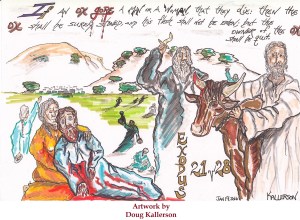 IF AN OX gore A MAN OR A WOMAN that they DIE: then the
OX shall be surely stoned, and his flesh shall not be eaten but the
owner of the OX
shall be quit.
EXODUS
21 v 28
KALLERSON
Artwork by
Doug Kallerson